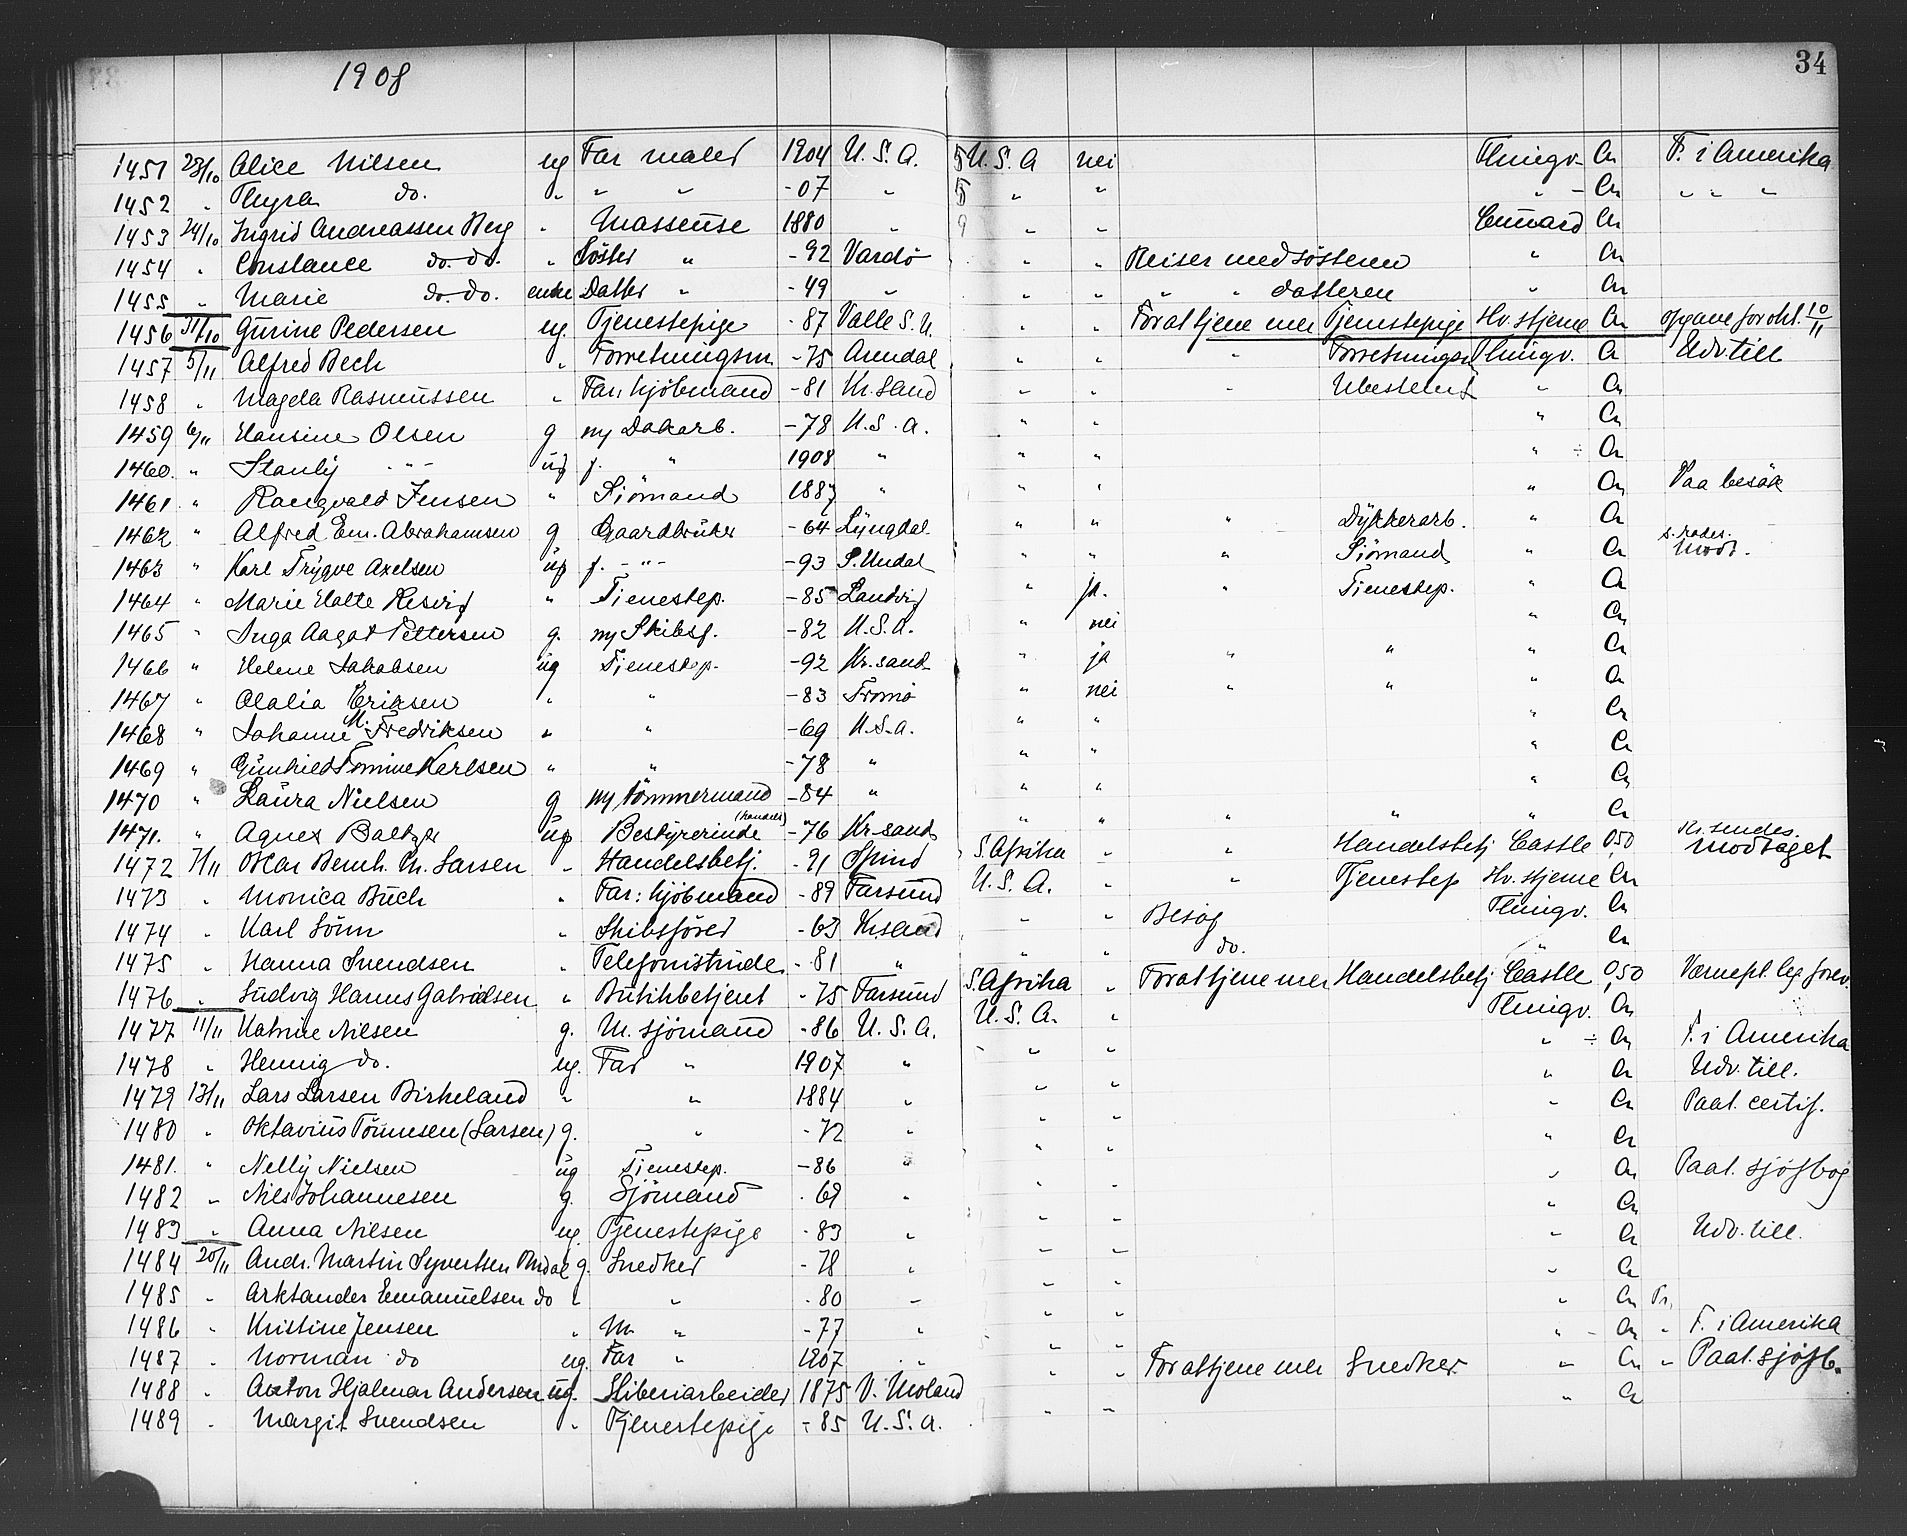 1908 34
1451 23/10 Alice Nilsen ug Far maler 1904 U.S.A. 5 U.S.A nei Thingv. Cr F. i Amerika
1452 " Thyra do. " " " -07 " 5 " " " - Cr " " "
1453 24/10 Ingrid Andreassen Berg " Masseuse 1880 " 9 " " Cunard Cr
1454 " Constance do. do. " Söster " -92 Vardö " " Reiser med sösteren " Cr
1455 " Marie do. do. enke Datter " -49 " " " " " datteren " Cr
1456 31/10 Gurine Pedersen ug. Tjenestepige -87 Valle S.U. " " For at tjene mer Tjenestepige Hv. stjerne Cr opgave for okt. 10/11
1457 5/11 Alfred Bech " Forretningsm -75 Arendal " " " Forretningsm Thingv. Cr Udv. till
1458 " Magda Rasmussen " Far: kjöbmand -81 Kr. sand " " " Ubestemt " Cr
1459 6/11 Hansine Olsen g m Dokarb. -78 U.S.A. " " " Cr
1460. " Stanly - " - ug f. " 1908 " " " " ÷ Cr
1461. " Rangvald Jensen " Siömand 1887 " " " " Cr Paa besök
1462 " Alfred Em. Abrahamsen g Gaardbruker -64 Lyngdal " " " Dykkerarb. " Cr
1463 " Karl Trygve Axelsen ug f. - " - -93 S. Undal " " " Siömand " Cr modt.
1464 " Marie Halte ug Tienestep. -85 Landvig " ja. " Tienestep. " Cr
1465 " Inga Aagot Pettersen g. m Skibsf. -82 U.S.A. " nei " Cr
1466 " Helene Jakobsen ug Tienestep. -92 Kr. sand " ja " " " Cr
1467 " Olalia Eriksen " " -83 Tromö " nei " " " Cr
1468 " Johanne M. Fredriksen " " -69 U.S.A. " " " Cr
1469 " Gunhild Tomine Karlsen " " -78 " " " " Cr
1470 " Laura Nielsen g m Tömmermand -84 " " " " Cr
1471. " Agnes ug Bestyrerinde (handels) -76 Kr. sand " " " " " Cr
1472 7/11 Oskar Bernh. M. Larsen " Handelsbetj. -91 Spind S. Afrika " " Handelsbetj Castle 0,50 modtaget
1473 " Monica Buch " Far: kjöbmand -89 Farsund U.S.A. " " Tjenestep Hv. stjerne Cr
1474 " Karl Sönn " Skibsförer -63 Kr. sand " " Besög Thingv. Cr
1475 " Hanna Svendsen " Telefonistinde -81 " " " do. " Cr
1476 " Ludvig Hannes Gabrielsen " Butikbetjent -75 Farsund S. Afrika " For at tjene mer Handelsbetj Castle 0,50 Vernepl. leg. forev.
1477 11/11 Katrine Nilsen g. M. sjömand -86 U.S.A. U.S.A. " Thingv. Cr
1478 " Hennig do. ug. Far " 1907 " " " " ÷ Cr F. i Amerika
1479 13/11 Lars Larsen Birkeland " " 1884 " " " " Cr Udv. till.
1480 " Oktavius Tönnesen (Larsen) g. " -72 " " " " Cr Paal. certif.
1481. " Nelly Nielsen ug Tienestep. -86 " " " " Cr
1482 " Nils Johannesen g. Sjömand -69 " " " " Cr Paal. sjöfbog
1483 " Anna Nilsen ug. Tjenestepige -83 " " " " Cr
1484 20/11 Andr. Martin Syvertsen g. Snedker -78 " " " " Cr Udv. till.
1485 " Arktander Emanuelsen do " " -80 " " " " Cr
1486 " Kristine Jensen " M. " -77 " " " " Cr Pr.
1487 " Norman do ug. Far " 1907 " " " " - Cr " F. i Amerika
1488 " Anton Hjalmar Andersen ug. Sliberiarbeider 1875 V. Moland " " For at tjene mer Snedker " Cr " Paal. sjöfb.
1489 " Margit Svendsen " Tjenestepige -85 U.S.A. " " " Cr